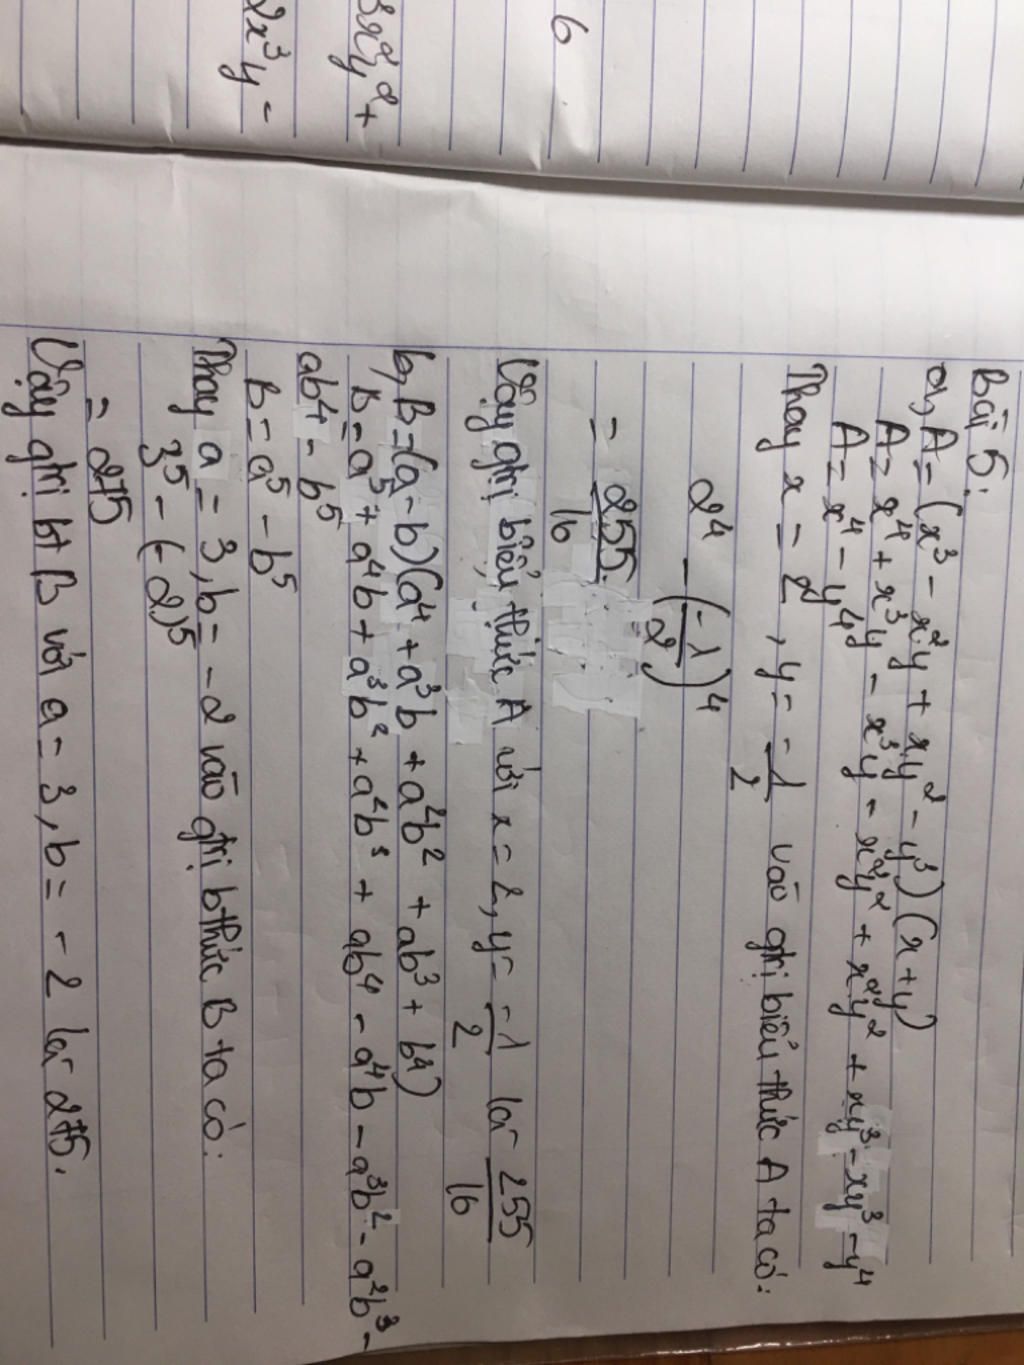 Bài 5:
a, A = (x³ - x²y + xy² - y³) (x + y)
A = x⁴ + x³y - x³y - x²y² + x²y² + xy³ - xy³ - y⁴
A = x⁴ - y⁴
Thay x = 2, y = -1/2 vào gtrị biểu thức A ta có:
2⁴ - (-1/2)⁴
= 255/16
Vậy gtrị biểu thức A với x = 2, y = -1/2 là 255/16
b, B = (a - b)(a⁴ + a³b + a²b² + ab³ + b⁴)
B = a⁵ + a⁴b + a³b² + a²b³ + ab⁴ - a⁴b - a³b² - a²b³ -
ab⁴ - b⁵
B = a⁵ - b⁵
Thay a = 3, b = -2 vào gtrị bthức B ta có:
3⁵ - (-2)⁵
= 275
Vậy gtrị bt B với a = 3, b = -2 là 275.
6
3x²y² +
2x³y -